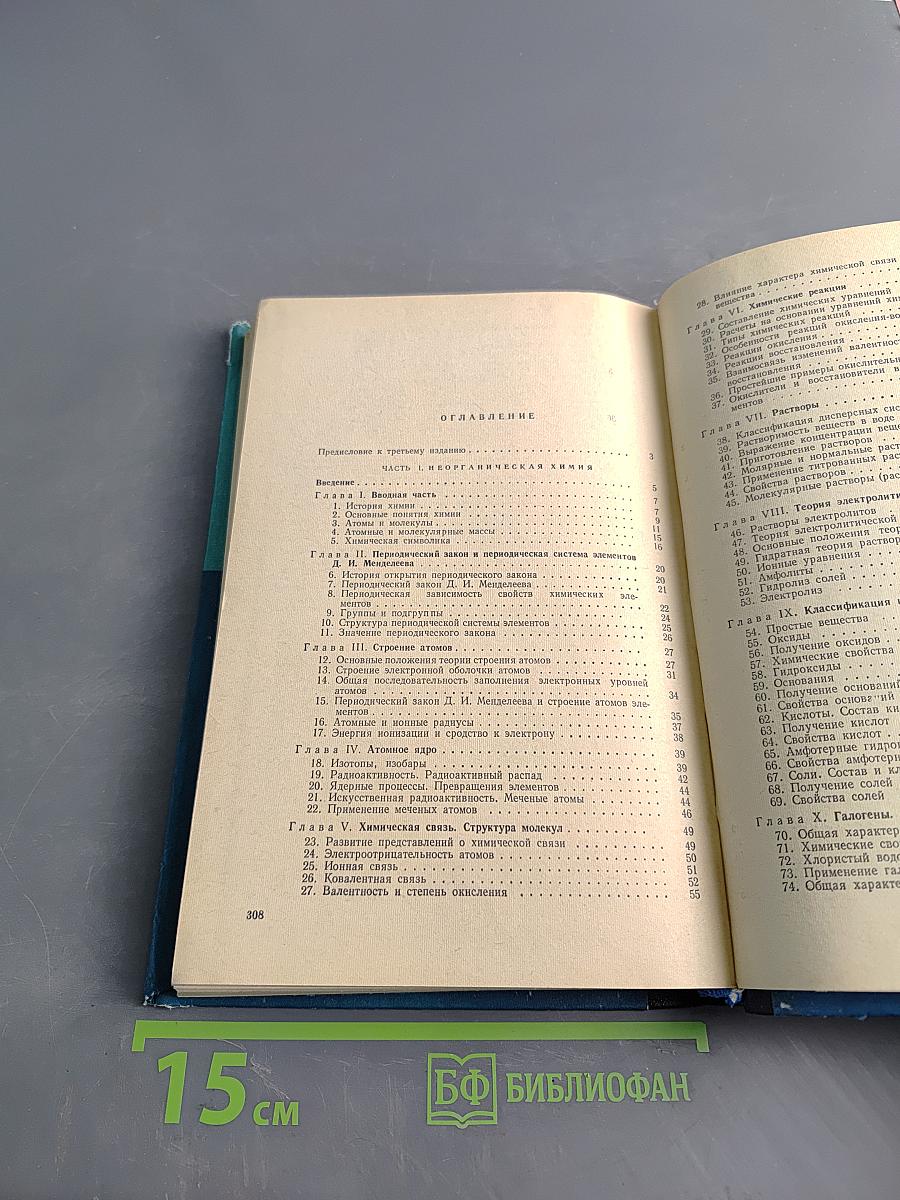 ОГЛАВЛЕНИЕ
Предисловие к третьему изданию . . . 3
ЧАСТЬ I. НЕОРГАНИЧЕСКАЯ ХИМИЯ
Введение . . . 5
Глава I. Вводная часть . . . 7
1. История химии . . . 7
2. Основные понятия химии . . . 9
3. Атомы и молекулы . . . 11
4. Атомные и молекулярные массы . . . 15
5. Химическая символика . . . 16
Глава II. Периодический закон и периодическая система элементов
Д. И. Менделеева . . . 20
6. История открытия периодического закона . . . 20
7. Периодический закон Д. И. Менделеева . . . 21
8. Периодическая зависимость свойств химических эле-
ментов . . . 22
9. Группы и подгруппы . . . 24
10. Структура периодической системы элементов . . . 25
11. Значение периодического закона . . . 26
Глава III. Строение атомов . . . 27
12. Основные положения теории строения атомов . . . 27
13. Строение электронной оболочки атомов . . . 31
14. Общая последовательность заполнения электронных уровней
атомов . . . 34
15. Периодический закон Д. И. Менделеева и строение атомов эле-
ментов . . . 35
16. Атомные и ионные радиусы . . . 37
17. Энергия ионизации и сродство к электрону . . . 38
Глава IV. Атомное ядро . . . 39
18. Изотопы, изобары . . . 39
19. Радиоактивность. Радиоактивный распад . . . 42
20. Ядерные процессы. Превращения элементов . . . 44
21. Искусственная радиоактивность. Меченые атомы . . . 44
22. Применение меченых атомов . . . 46
Глава V. Химическая связь. Структура молекул . . . 49
23. Развитие представлений о химической связи . . . 49
24. Электроотрицательность атомов . . . 50
25. Ионная связь . . . 51
26. Ковалентная связь . . . 52
27. Валентность и степень окисления . . . 55
308
28. Влияние характера химической связи
вещества . . .
Глава VI. Химические реакции
29. Составление химических уравнений
30. Расчеты на основании уравнений хи
31. Типы химических реакций
32. Особенности реакций окисления-во
33. Реакции окисления
34. Реакции восстановления
35. Взаимосвязь изменений валентнос
восстановления
36. Простейшие примеры окислительн
37. Окислители и восстановители в
ментов
Глава VII. Растворы
38. Классификация дисперсных сис
39. Растворимость веществ в воде
40. Выражение концентрации веще
41. Приготовление растворов
42. Молярные и нормальные раст
43. Применение титрованных рас
44. Свойства растворов
45. Молекулярные растворы (рас
Глава VIII. Теория электролити
46. Растворы электролитов
47. Теория электролитической
48. Основные положения теор
49. Гидратная теория раствор
50. Ионные уравнения
51. Амфолиты
52. Гидролиз солей
53. Электролиз
Глава IX. Классификация
54. Простые вещества
55. Оксиды
56. Получение оксидов
57. Химические свойства
58. Гидроксиды
59. Основания
60. Получение оснований
61. Свойства оснований
62. Кислоты. Состав ки
63. Получение кислот
64. Свойства кислот
65. Амфотерные гидро
66. Свойства амфотерн
67. Соли. Состав и кл
68. Получение солей
69. Свойства солей
Глава X. Галогены.
70. Общая характер
71. Химические сво
72. Хлористый водо
73. Применение гал
74. Общая характе
15 см
БФ БИБЛИОФАН